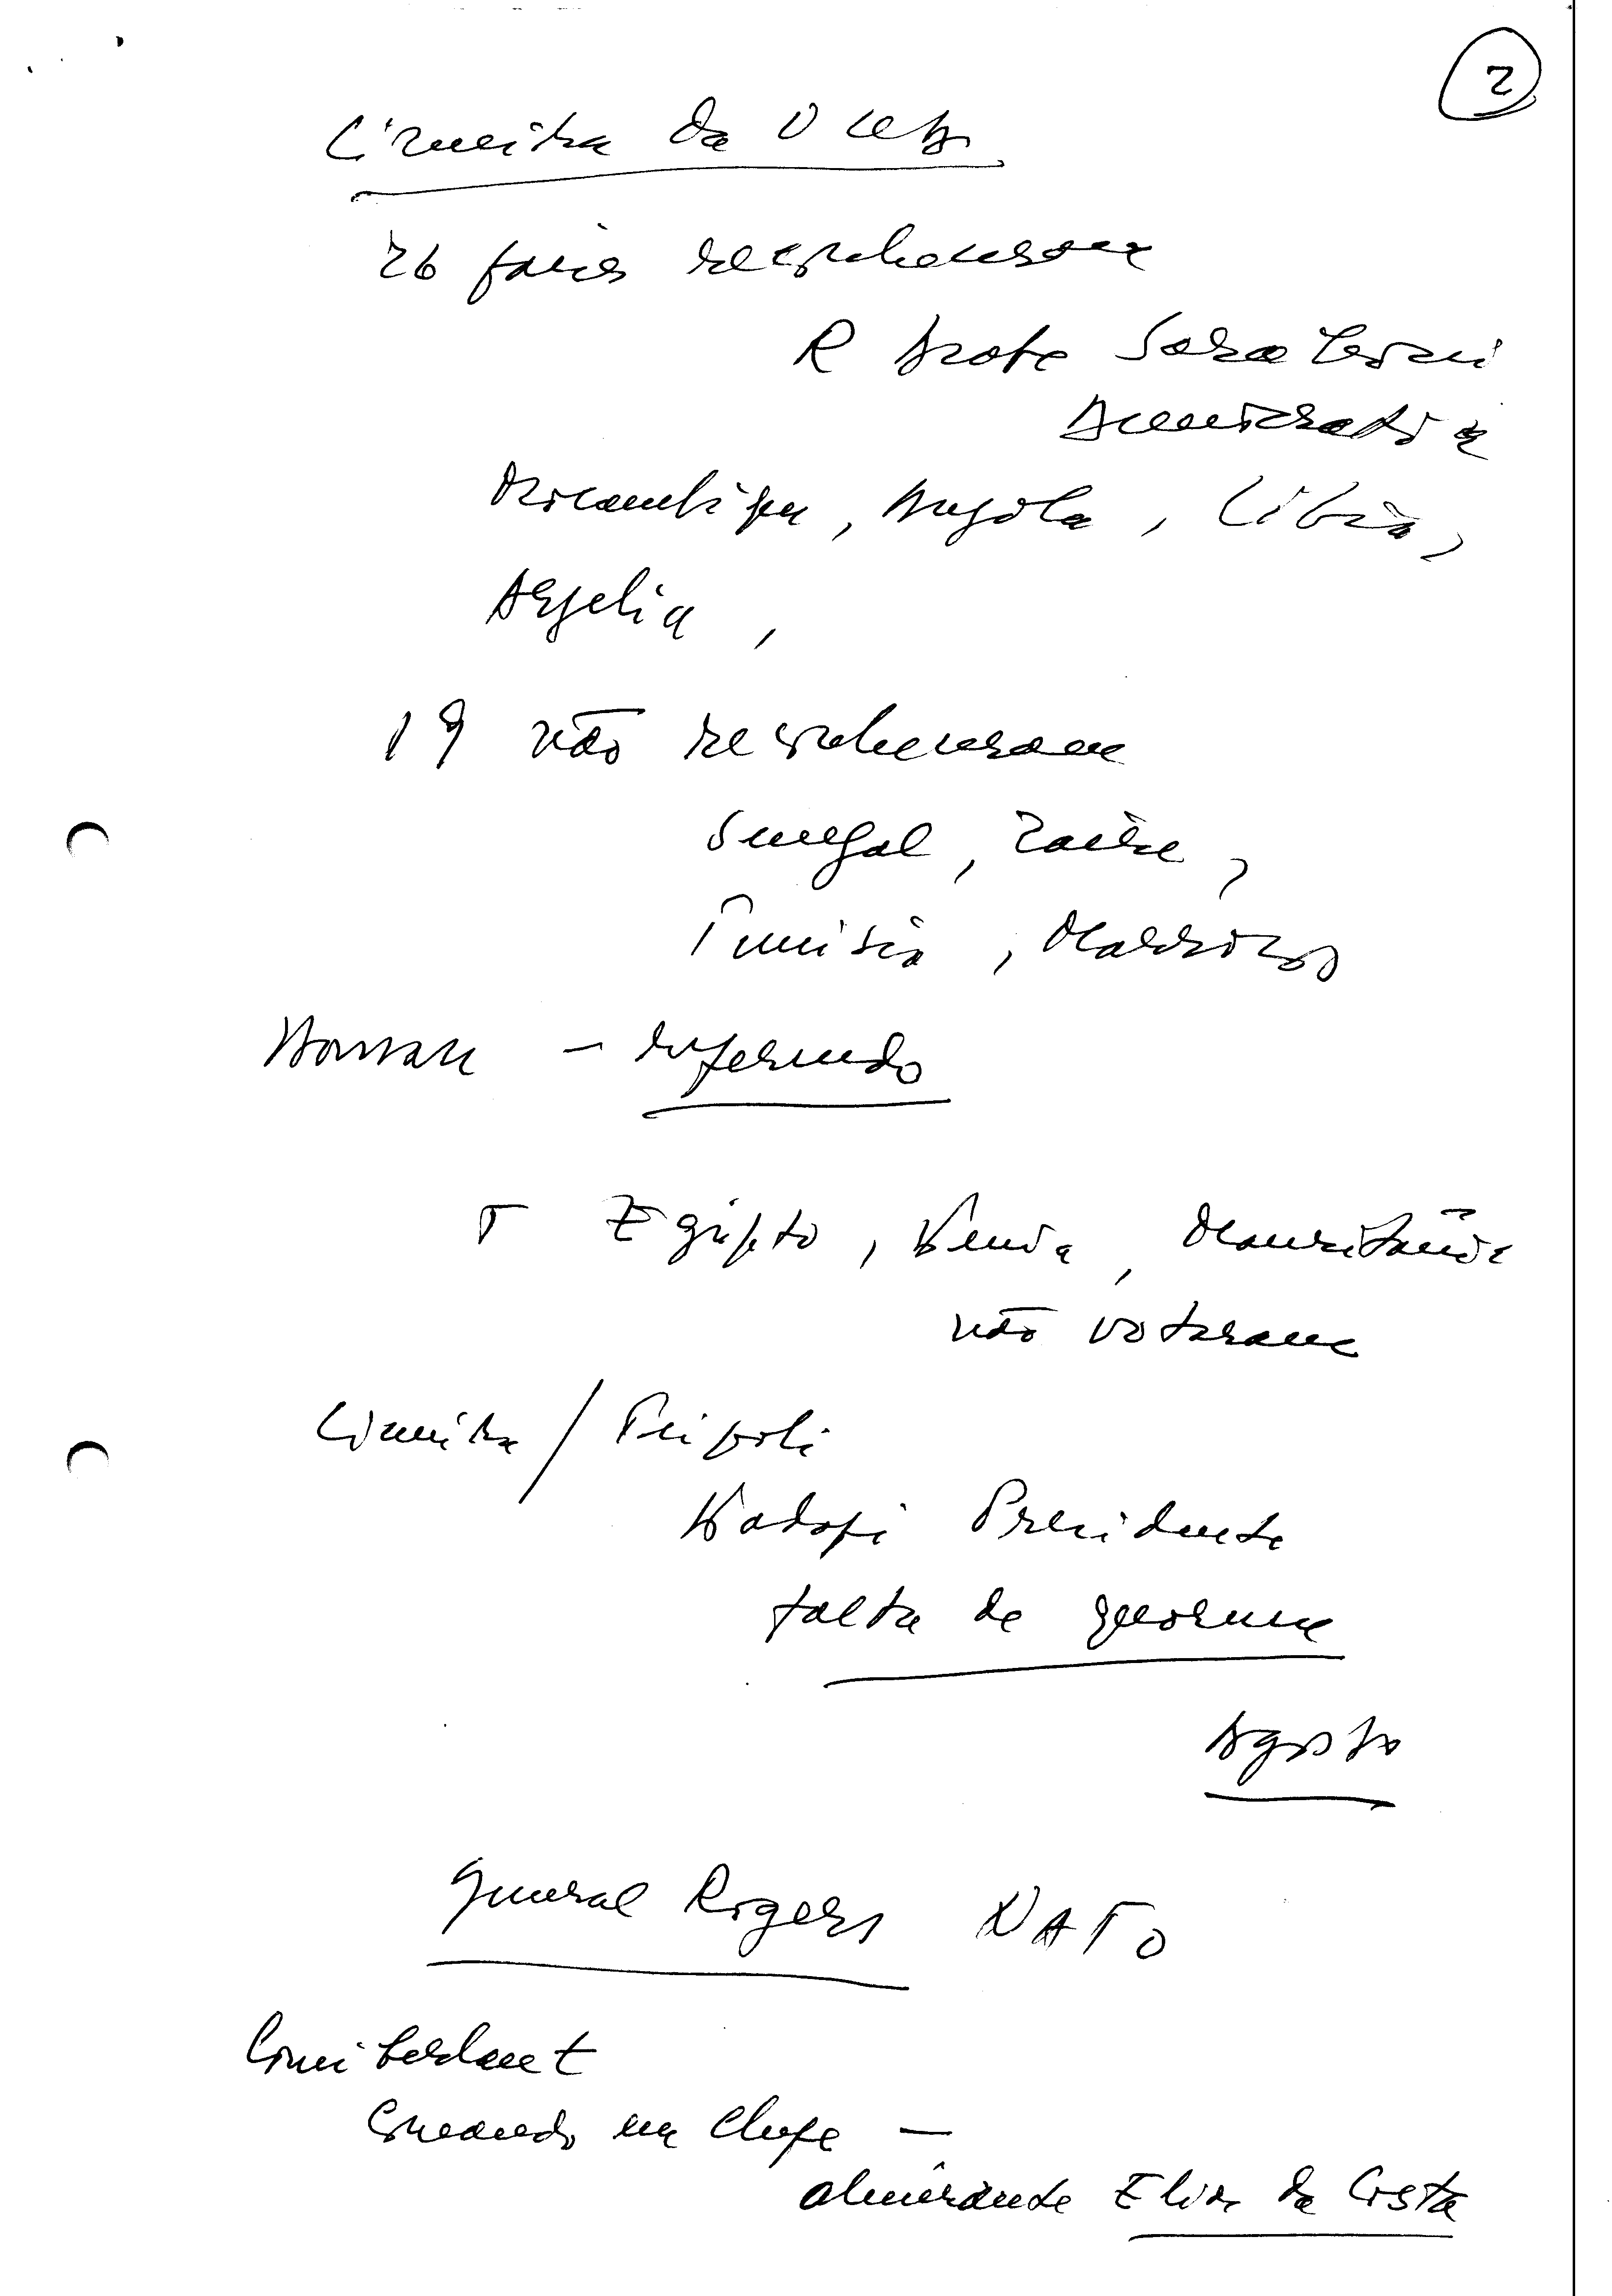 2
Cimeira da OUA
26 países reconheceram
R Arabe Saraui
Democratica
Mocambique, Angola, Libia,
Argelia,
19 não reconheceram
Senegal, Zaire,
Tunisia, Marrocos
Hassan – referendo
Egipto, Kenia, Mauritânia
não votaram
Cimeira / Tripoli
Kadafi Presidente
falta de quorum
Agosto
General Rogers NATO
Comiberlant
Comando em Chefe –
almirante Elias da Costa